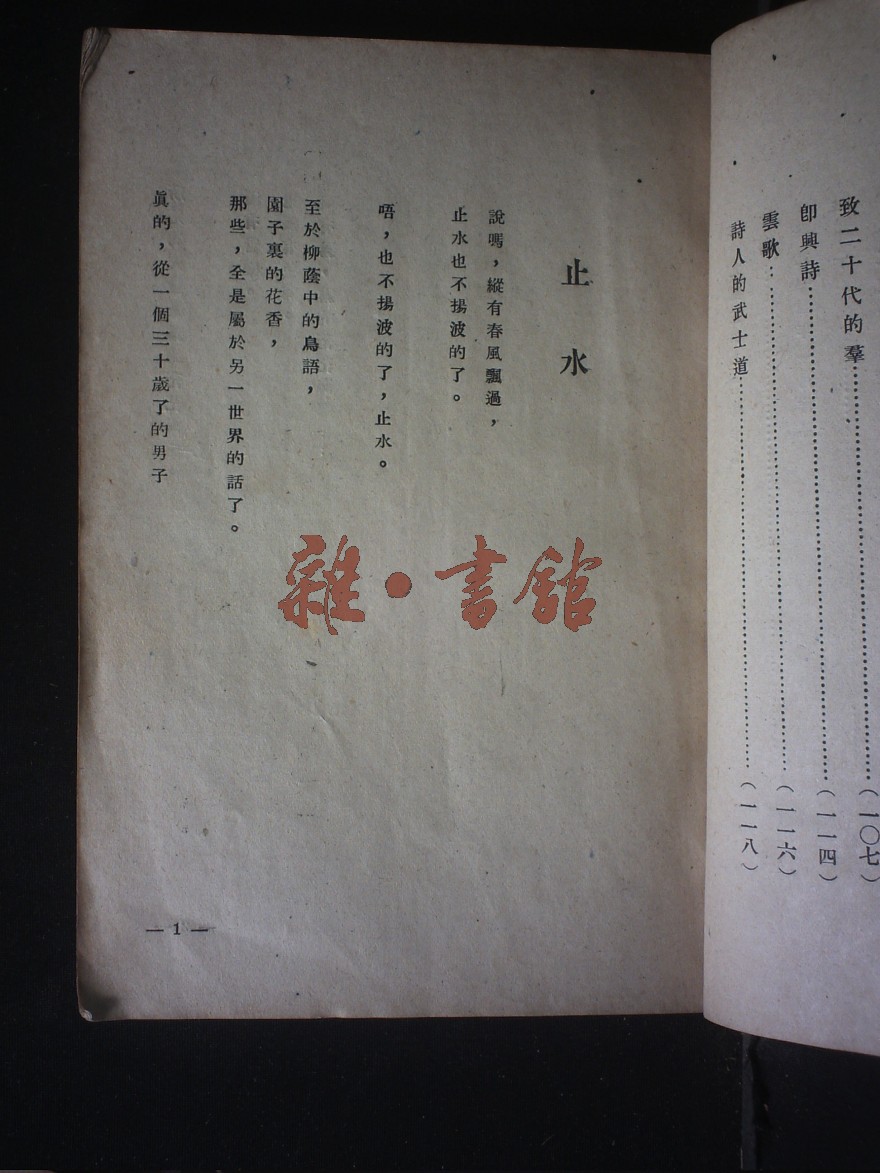 致二十代的羣……(一〇七)
卽興詩……(一一四)
雲歌……(一一六)
詩人的武士道……(一一八)
止水
說嗎，縱有春風飄過，
止水也不揚波的了。
唔，也不揚波的了，止水。
至於柳蔭中的鳥語，
園子裏的花香，
那些，全是屬於另一世界的話了。
眞的，從一個三十歲了的男子
— 1 —
雜·書館